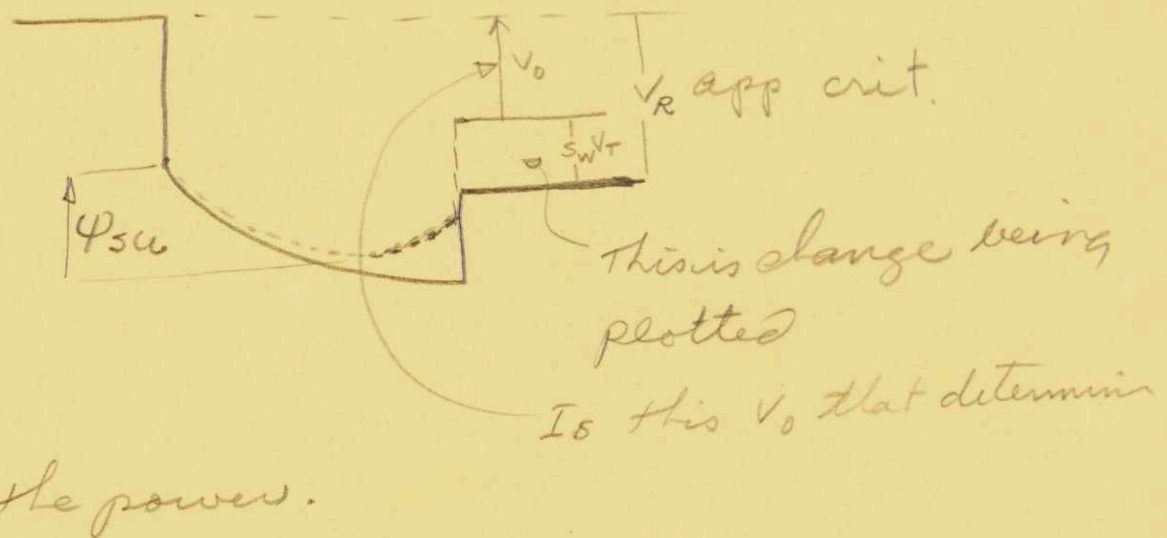 V₀
V_R app crit.
S_W V_T
φ_su
This is change being
plotted
Is this V₀ that determin
the power.